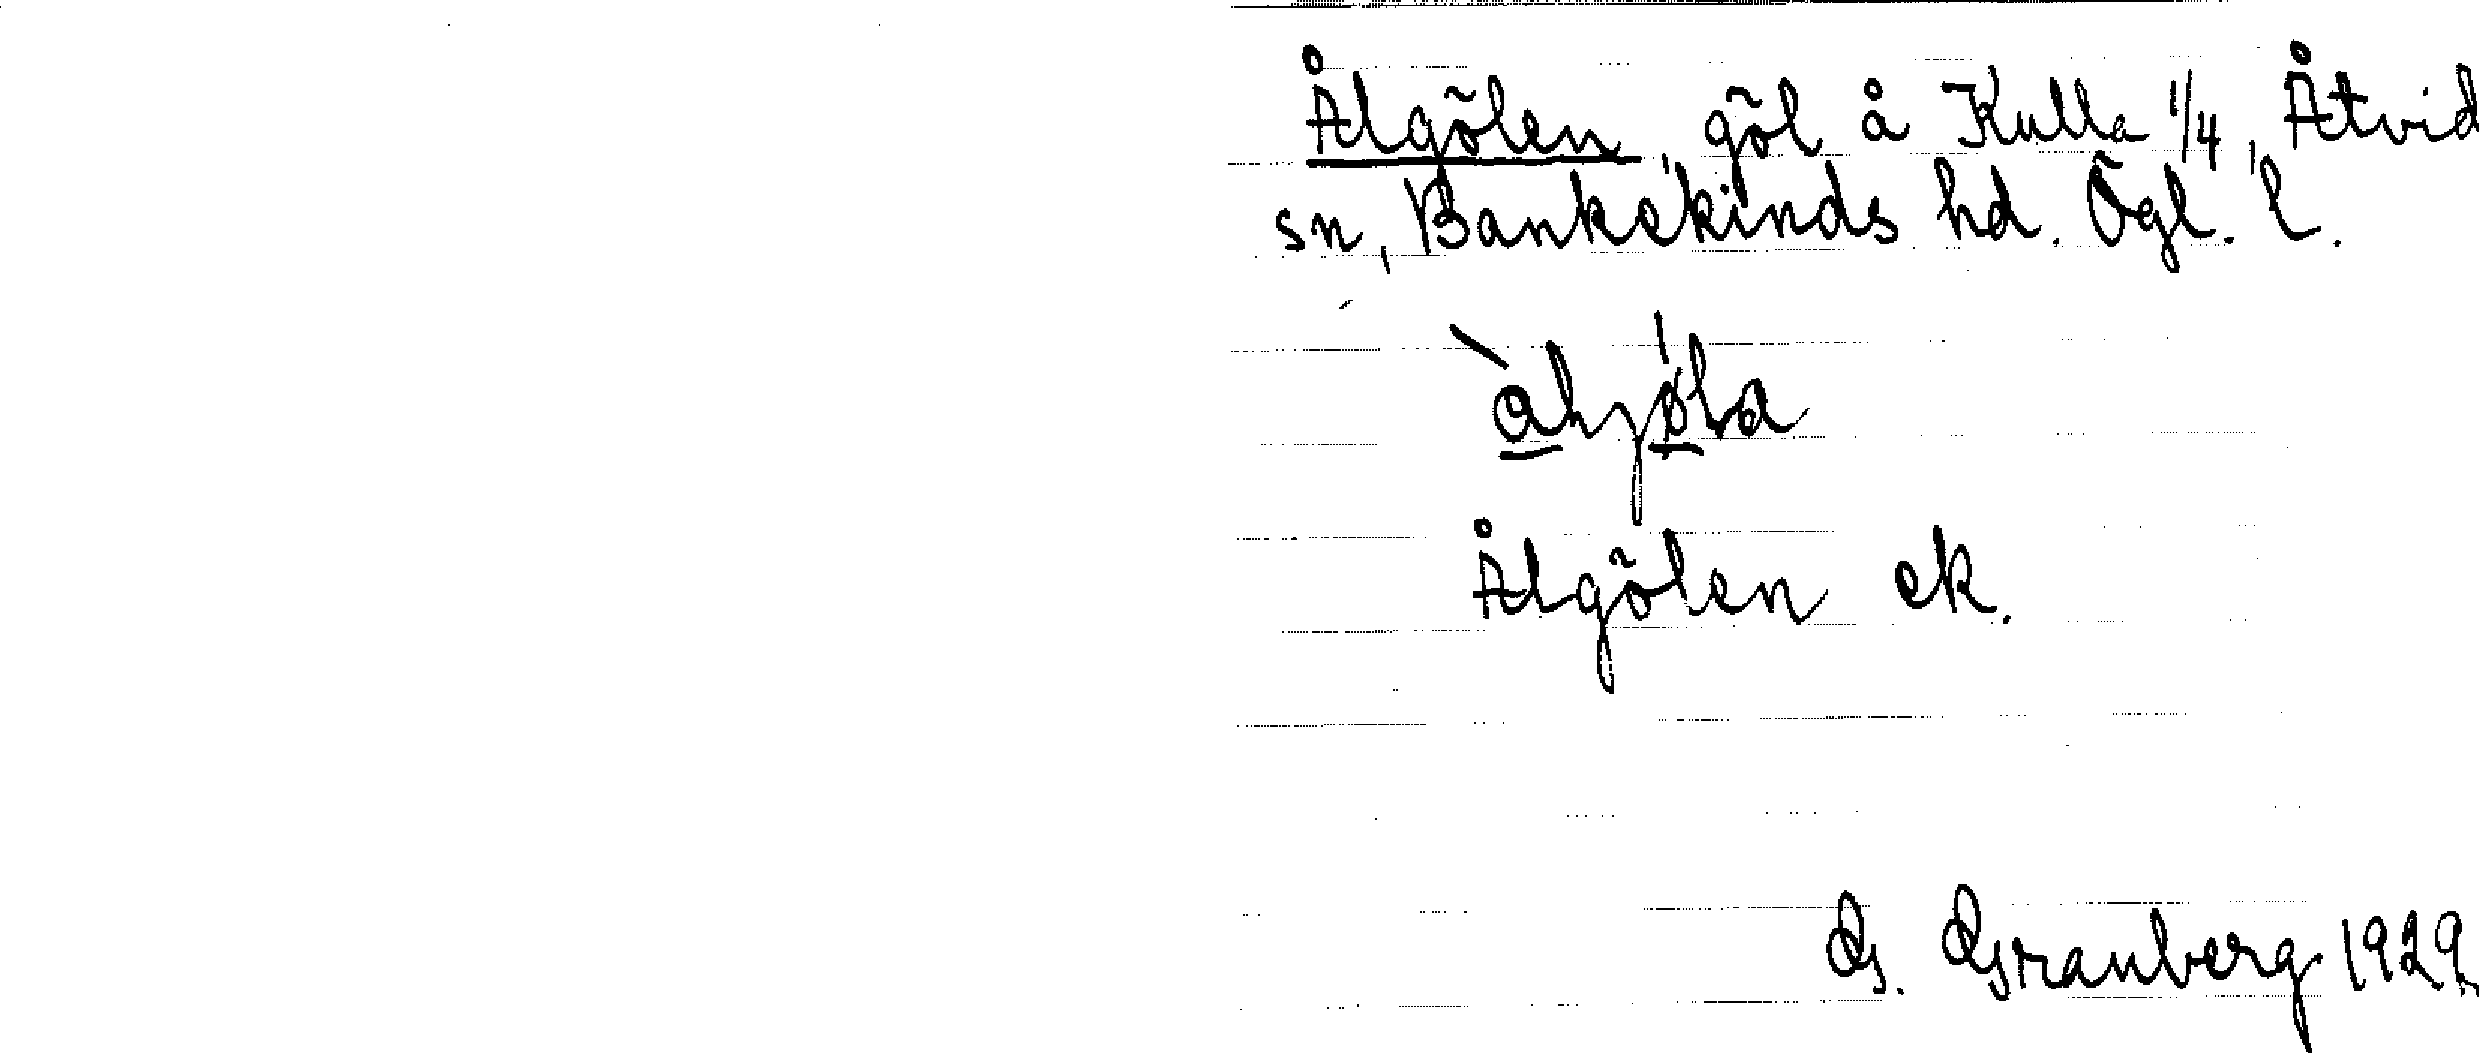 Ålgölen, göl å Kulla 1/4, Åtvid
sn, Bankekinds hd. Ögl. l.
Ålgölen ek.
G. Granberg 1929